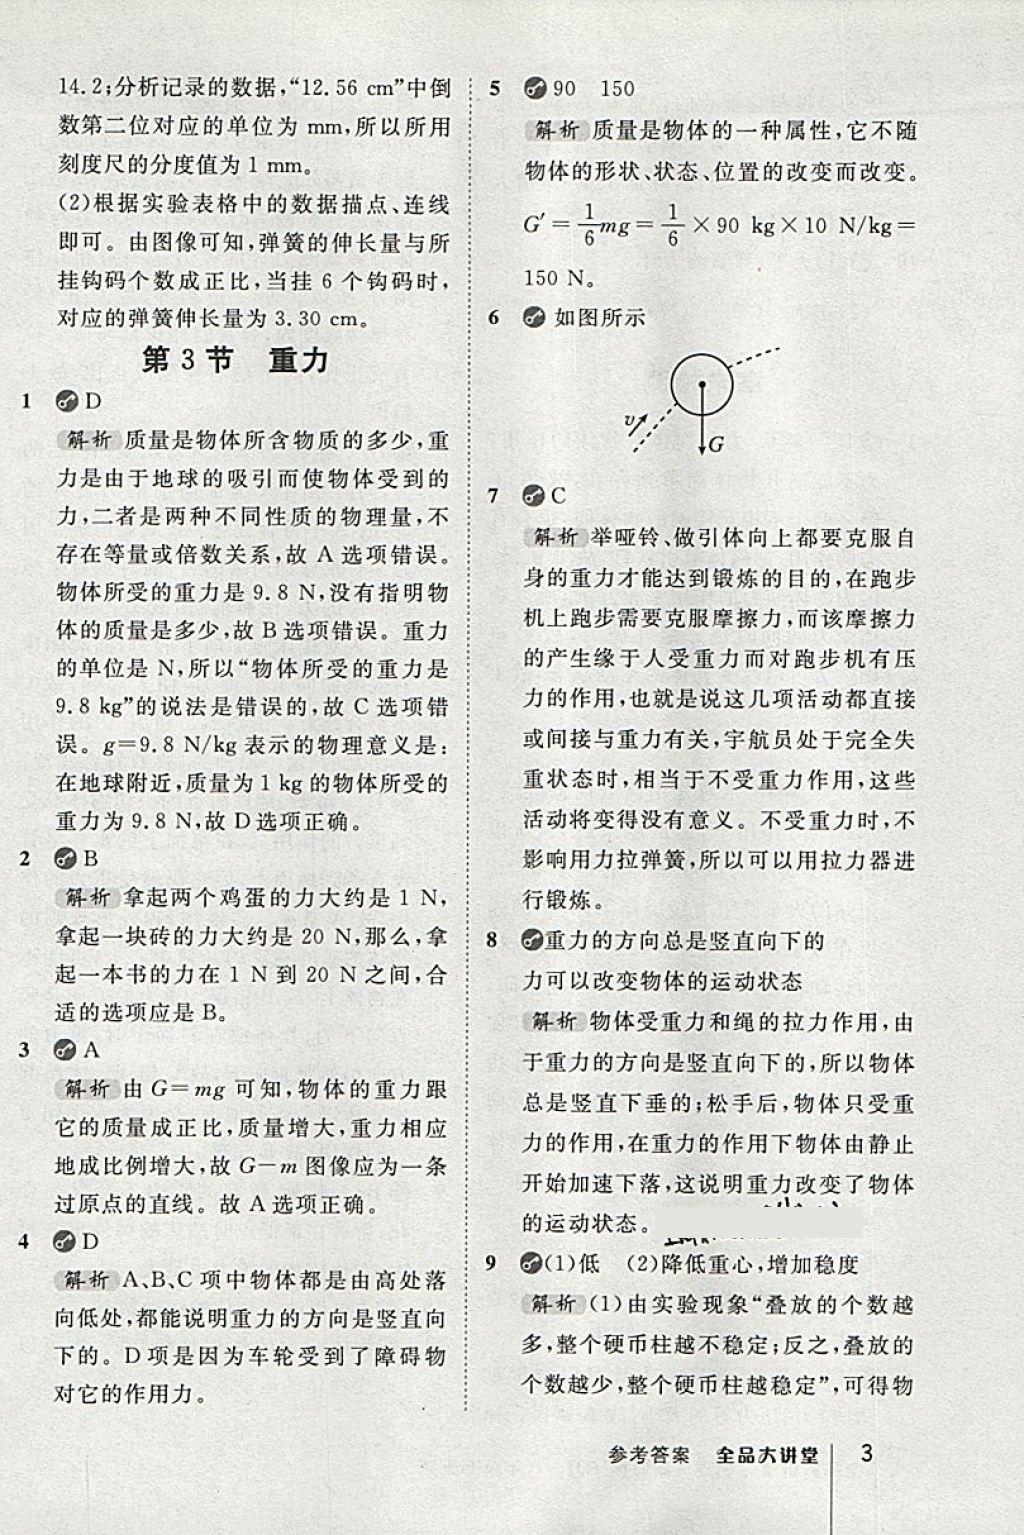 14.2;分析记录的数据,“12.56 cm”中倒
数第二位对应的单位为 mm,所以所用
刻度尺的分度值为 1 mm。
(2)根据实验表格中的数据描点、连线
即可。由图像可知,弹簧的伸长量与所
挂钩码个数成正比,当挂 6 个钩码时,
对应的弹簧伸长量为 3.30 cm。
第 3 节 重力
1 D
解析 质量是物体所含物质的多少,重
力是由于地球的吸引而使物体受到的
力,二者是两种不同性质的物理量,不
存在等量或倍数关系,故 A 选项错误。
物体所受的重力是 9.8 N,没有指明物
体的质量是多少,故 B 选项错误。重力
的单位是 N,所以“物体所受的重力是
9.8 kg”的说法是错误的,故 C 选项错
误。g=9.8 N/kg 表示的物理意义是:
在地球附近,质量为 1 kg 的物体所受的
重力为 9.8 N,故 D 选项正确。
2 B
解析 拿起两个鸡蛋的力大约是 1 N,
拿起一块砖的力大约是 20 N,那么,拿
起一本书的力在 1 N 到 20 N 之间,合
适的选项应是 B。
3 A
解析 由 G=mg 可知,物体的重力跟
它的质量成正比,质量增大,重力相应
地成比例增大,故 G-m 图像应为一条
过原点的直线。故 A 选项正确。
4 D
解析 A、B、C 项中物体都是由高处落
向低处,都能说明重力的方向是竖直向
下的。D 项是因为车轮受到了障碍物
对它的作用力。
5 90 150
解析 质量是物体的一种属性,它不随
物体的形状、状态、位置的改变而改变。
G′=1/6mg=1/6×90 kg×10 N/kg=
150 N。
6 如图所示
v
G
7 C
解析 举哑铃、做引体向上都要克服自
身的重力才能达到锻炼的目的,在跑步
机上跑步需要克服摩擦力,而该摩擦力
的产生缘于人受重力而对跑步机有压
力的作用,也就是说这几项活动都直接
或间接与重力有关,宇航员处于完全失
重状态时,相当于不受重力作用,这些
活动将变得没有意义。不受重力时,不
影响用力拉弹簧,所以可以用拉力器进
行锻炼。
8 重力的方向总是竖直向下的
力可以改变物体的运动状态
解析 物体受重力和绳的拉力作用,由
于重力的方向是竖直向下的,所以物体
总是竖直下垂的;松手后,物体只受重
力的作用,在重力的作用下物体由静止
开始加速下落,这说明重力改变了物体
的运动状态。
9 (1)低 (2)降低重心,增加稳度
解析 (1)由实验现象“叠放的个数越
多,整个硬币柱越不稳定;反之,叠放的
个数越少,整个硬币柱越稳定”,可得物
参考答案 全品大讲堂 3